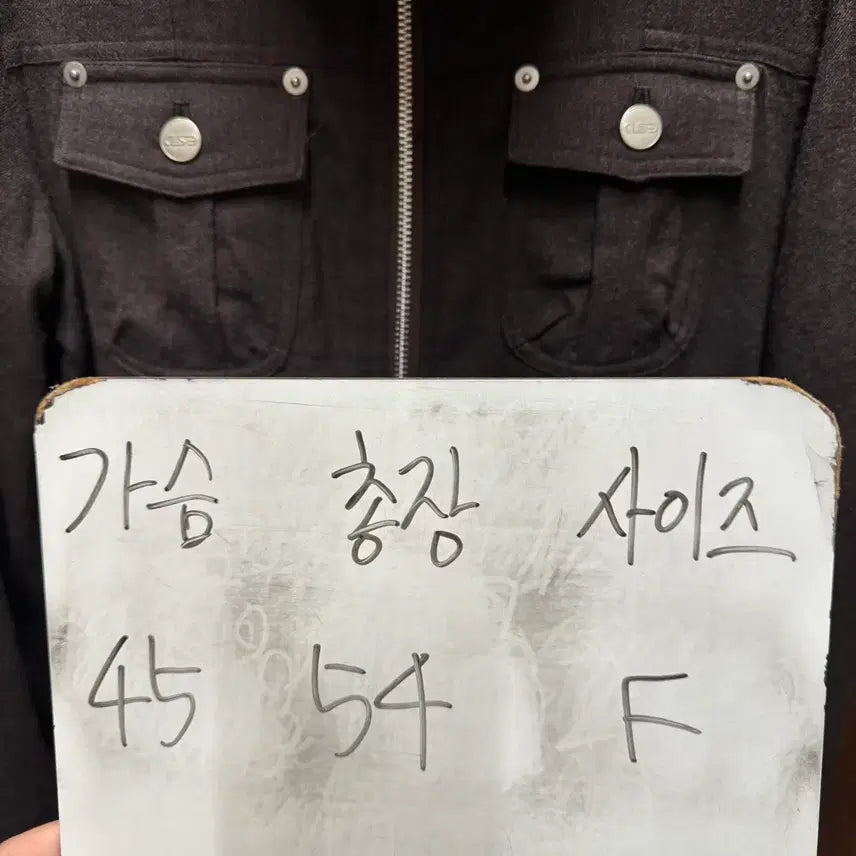 가슴 총장 사이즈
45 54 F